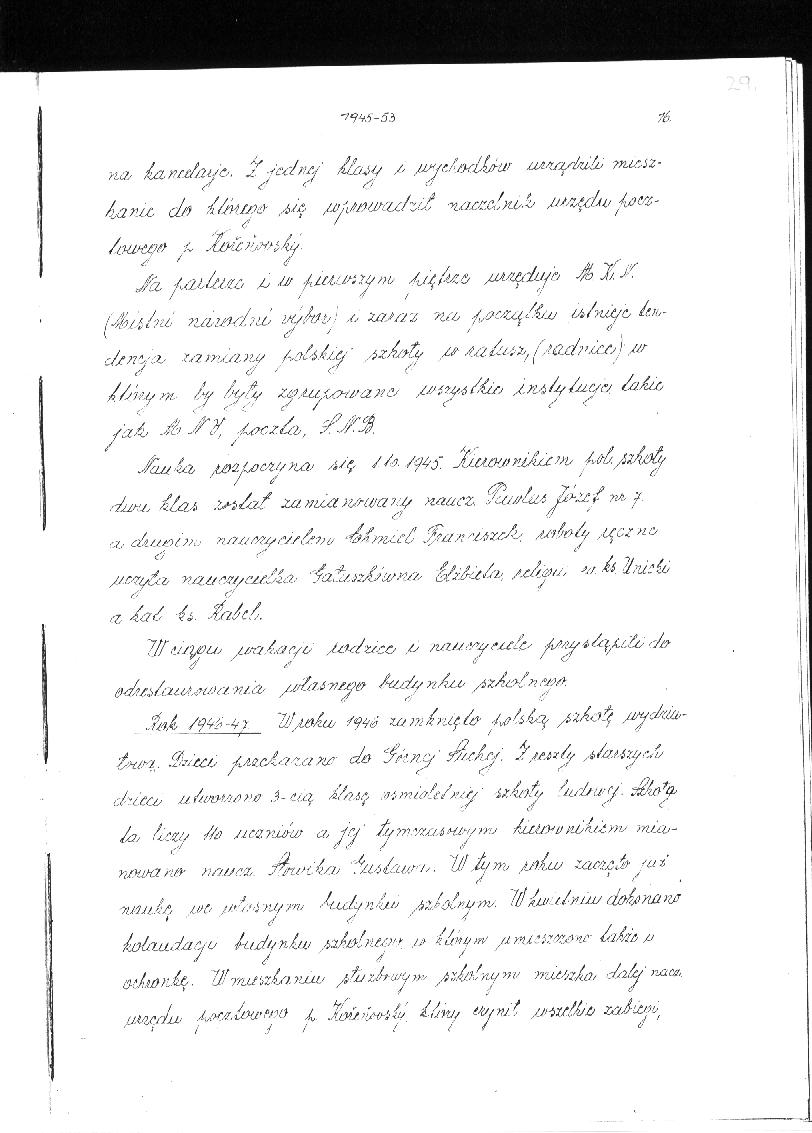 29.
1945-53 16.
na kancelaję. Z jednej klasy i wychodków urządzili miesz-
kanie do którego się wprowadził naczelnik urzędu pocz-
towego p. Kořeňovský.
Na parterze i w pierwszym piętrze urzęduje M.K.V.
(Místní národní výbor) i zaraz na początku istnieje ten-
dencja zamiany polskiej szkoły w ratusz, (radnice) w
którym by były zgrupowane wszystkie instytucje, takie
jak M N V, poczta, S.N.B.
Nauka rozpoczyna się 1.10.1945. Kierownikiem pol. szkoły
dwu klas został zamianowany naucz. Pawlus Józef nr 7.
a drugim nauczycielem Chmiel Franciszek, roboty ręczne
uczyła nauczycielka Gałuszkówna Elżbieta, religii ew. ks. Unicki
a kat. ks. Rabel.
W ciągu wakacji rodzice i nauczyciele przystąpili do
odrestaurowania własnego budynku szkolnego.
Rok 1946-47 W roku 1946 zamknięto polską szkołę wydzia-
łową. Dzieci przekazano do Górnej Suchej. Z reszty starszych
dzieci utworzono 3-cią klasę ośmioletniej szkoły ludowej. Szkoła
ta liczy 110 uczniów a jej tymczasowym kierownikiem mia-
nowano naucz. Gustawa. W tym roku zaczęto już
naukę we własnym budynku szkolnym. W kwietniu dokonano
kolaudacji budynku szkolnego, w którym umieszczono także i
ochronkę. W mieszkaniu służbowym szkolnym mieszka dalej nacz.
urzędu pocztowego p. Kořeňovský, który czynił wszelkie zabiegi,